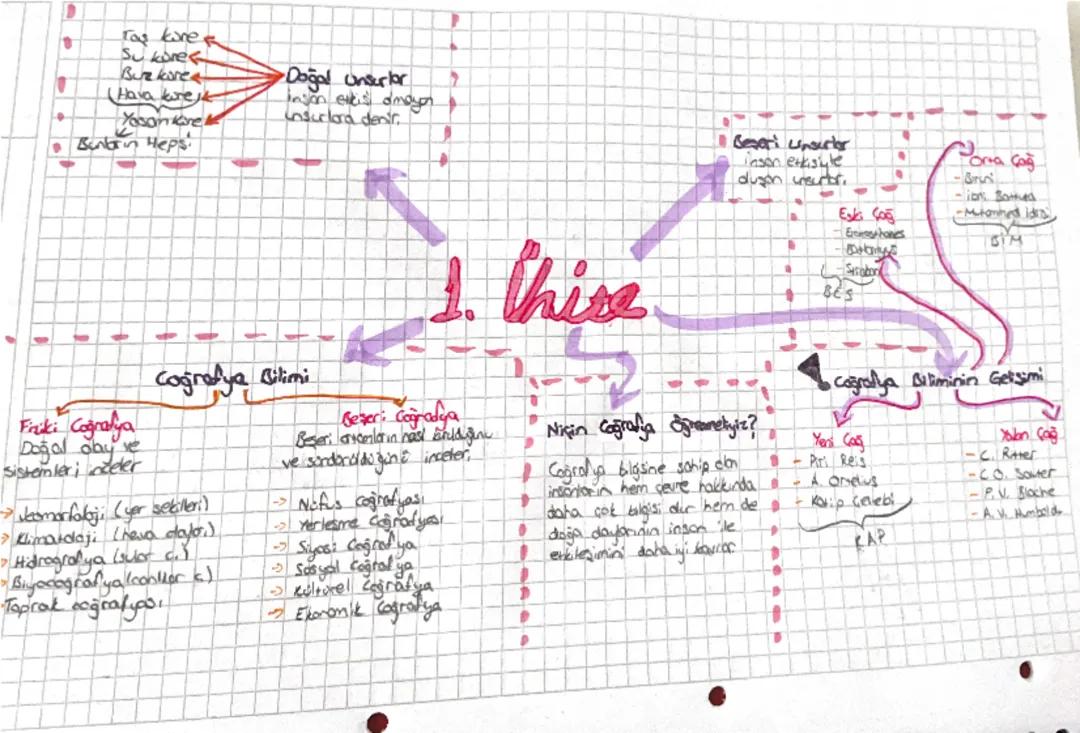 Taş küre
Su küre
Buz küre
Hava küre
Yaşam küre
Bunların Hepsi
Doğal Unsurlar
insan etkisi olmayan
unsurlara denir.
Beşeri Unsurlar
insan etkisiyle
oluşan unsurlar.
Orta Çağ
- Biruni
- ibni Battuta
- Muhammed idrisi
BİM
Eski Çağ
- Eratosthanes
- Batlamyus
- Strabon
BES
1. Ünite
Coğrafya Bilimi
Fiziki Coğrafya
Doğal olay ve
sistemleri inceler
→ Jeomorfoloji (yer şekilleri)
→ Klimatoloji (hava olayları)
→ Hidrografya (sular c.)
→ Biyocoğrafya (canlılar c.)
Toprak coğrafyası
Beşeri Coğrafya
Beşeri ortamların nasıl kurulduğunu
ve sürdürüldüğünü inceler.
→ Nüfus Coğrafyası
→ Yerleşme Coğrafyası
→ Siyasi Coğrafya
→ Sosyal Coğrafya
→ Kültürel Coğrafya
→ Ekonomik Coğrafya
Niçin Coğrafya Öğrenmeliyiz?
Coğrafya bilgisine sahip olan
insanların hem çevre hakkında
daha çok bilgisi olur hem de
doğa olaylarının insan ile
etkileşimini daha iyi kavrar.
Coğrafya Biliminin Gelişimi
Yeni Çağ
- Piri Reis
- A. Ortelius
- Katip Çelebi
KAP
Yakın Çağ
- C. Ritter
- C.O. Sauer
- P.V. Blache
- A.V. Humboldt